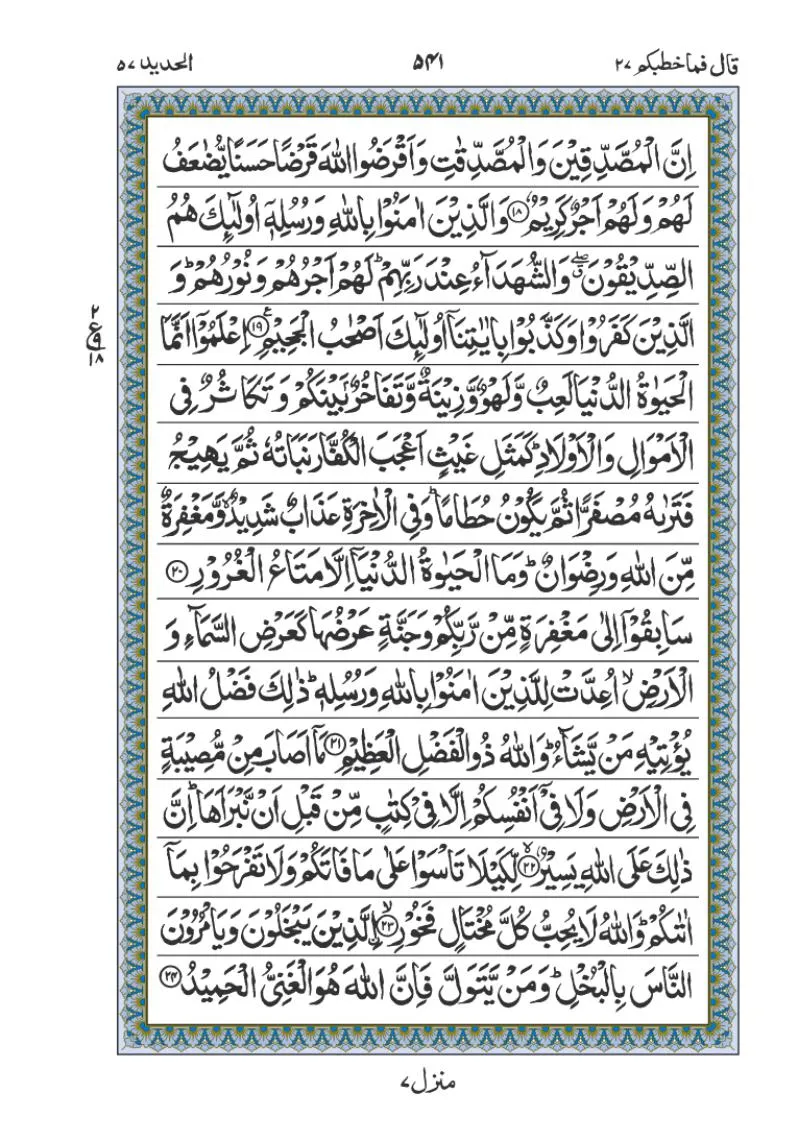 قال فما خطبکم ۲۷
۵۴۱
الحدید ۵۷
اِنَّ الْمُصَّدِّقِیْنَ وَالْمُصَّدِّقٰتِ وَاَقْرَضُوا اللّٰهَ قَرْضًا حَسَنًا یُّضٰعَفُ
لَهُمْ وَلَهُمْ اَجْرٌ كَرِیْمٌ ﴿۱۸﴾ وَالَّذِیْنَ اٰمَنُوْا بِاللّٰهِ وَرُسُلِهٖۤ اُولٰٓىِٕكَ هُمُ
الصِّدِّیْقُوْنَ ۖۗ وَالشُّهَدَآءُ عِنْدَ رَبِّهِمْ ؕ لَهُمْ اَجْرُهُمْ وَنُوْرُهُمْ ؕ وَ
الَّذِیْنَ كَفَرُوْا وَكَذَّبُوْا بِاٰیٰتِنَاۤ اُولٰٓىِٕكَ اَصْحٰبُ الْجَحِیْمِ ﴿۱۹﴾ اِعْلَمُوْۤا اَنَّمَا
۲
ع
۹
۱۸
الْحَیٰوةُ الدُّنْیَا لَعِبٌ وَّلَهْوٌ وَّزِیْنَةٌ وَّتَفَاخُرٌۢ بَیْنَكُمْ وَتَكَاثُرٌ فِی
الْاَمْوَالِ وَالْاَوْلَادِ ؕ كَمَثَلِ غَیْثٍ اَعْجَبَ الْكُفَّارَ نَبَاتُهٗ ثُمَّ یَهِیْجُ
فَتَرٰىهُ مُصْفَرًّا ثُمَّ یَكُوْنُ حُطَامًا ؕ وَفِی الْاٰخِرَةِ عَذَابٌ شَدِیْدٌ ۙ وَّمَغْفِرَةٌ
مِّنَ اللّٰهِ وَرِضْوَانٌ ؕ وَمَا الْحَیٰوةُ الدُّنْیَاۤ اِلَّا مَتَاعُ الْغُرُوْرِ ﴿۲۰﴾
سَابِقُوْۤا اِلٰی مَغْفِرَةٍ مِّنْ رَّبِّكُمْ وَجَنَّةٍ عَرْضُهَا كَعَرْضِ السَّمَآءِ وَ
الْاَرْضِ ۙ اُعِدَّتْ لِلَّذِیْنَ اٰمَنُوْا بِاللّٰهِ وَرُسُلِهٖ ؕ ذٰلِكَ فَضْلُ اللّٰهِ
یُؤْتِیْهِ مَنْ یَّشَآءُ ؕ وَاللّٰهُ ذُو الْفَضْلِ الْعَظِیْمِ ﴿۲۱﴾ مَاۤ اَصَابَ مِنْ مُّصِیْبَةٍ
فِی الْاَرْضِ وَلَا فِیْۤ اَنْفُسِكُمْ اِلَّا فِیْ كِتٰبٍ مِّنْ قَبْلِ اَنْ نَّبْرَاَهَا ؕ اِنَّ
ذٰلِكَ عَلَی اللّٰهِ یَسِیْرٌ ﴿۲۲﴾ لِّكَیْلَا تَاْسَوْا عَلٰی مَا فَاتَكُمْ وَلَا تَفْرَحُوْا بِمَاۤ
اٰتٰىكُمْ ؕ وَاللّٰهُ لَا یُحِبُّ كُلَّ مُخْتَالٍ فَخُوْرِ ﴿۲۳﴾ ۙ الَّذِیْنَ یَبْخَلُوْنَ وَیَاْمُرُوْنَ
النَّاسَ بِالْبُخْلِ ؕ وَمَنْ یَّتَوَلَّ فَاِنَّ اللّٰهَ هُوَ الْغَنِیُّ الْحَمِیْدُ ﴿۲۴﴾
منزل ۷